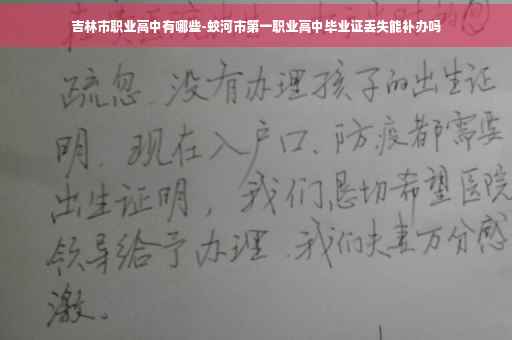 吉林市职业高中有哪些-蛟河市第一职业高中毕业证丢失能补办吗
疏忽、没有办理孩子的出生证
明、现在入户口、防疫都需要
出生证明，我们恳切希望医院
领导给予办理、我们夫妻万分感
激。